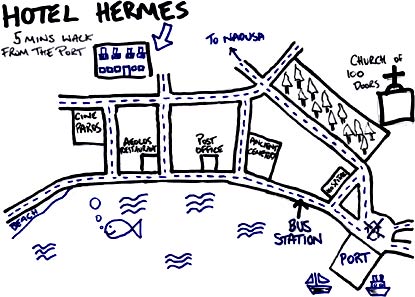 HOTEL HERMES
5 MINS WALK
FROM THE PORT
TO NAOUSA
CHURCH OF
100
DOORS
CINE
PAROS
AEOLOS
RESTAURANT
POST
OFFICE
ANCIENT
CEMETERY
BUS
STATION
PORT
BEACH